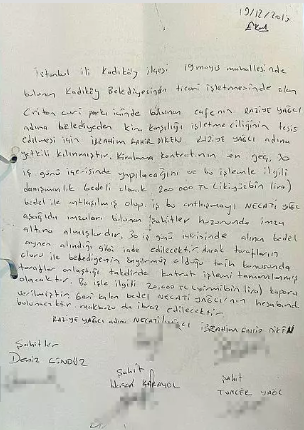 19/12/20
İstanbul ili Kadıköy ilçesi 19 mayıs mahallesinde
bulunan Kadıköy Belediyesinin ticari işletmesinde olan
Criton curi parkı içinde bulunan cafenin RAZİYE YAĞCI
adına belediyeden kira karşılığı işletmeciliğinin tesis
edilmesi için İBRAHİM FAHİR DİKEN RAZİYE YAĞCI adına
yetkili kılınmıştır. Kiralama kontratının en geç 30
iş günü içerisinde yapılacağını ve bu işlemle ilgili
danışmanlık bedeli olarak 200.000 TL (ikiyüzbin lira)
bedel ile anlaşılmış olup, iş bu anlaşmayı NECATİ YAĞCI
aşağıda imzaları bulunan şahitler huzurunda imza
altına almışlardır. 30 iş günü içinde alınan bedel
aynen alındığı gibi iade edilecektir. Ancak tarafların
oluru ile belediyenin öngörmüş olduğu tarih konusunda
taraflar anlaştığı takdirde kontrat işlemi tamamlanmış
olacaktır. Bu işle ilgili 20.000 TL (yirmibin lira) kapora
verilmiştir. Geri kalan bedel NECATİ YAĞCI'nın hesabında
bulunan makbuzda ibraz edilecektir.
RAZİYE YAĞCI adına NECATİ YAĞCI İBRAHİM FAHİR DİKEN
Şahitler
Deniz GÜNDÜZ
Şahit
KARAYOL
Şahit
TUNCER YAĞCI